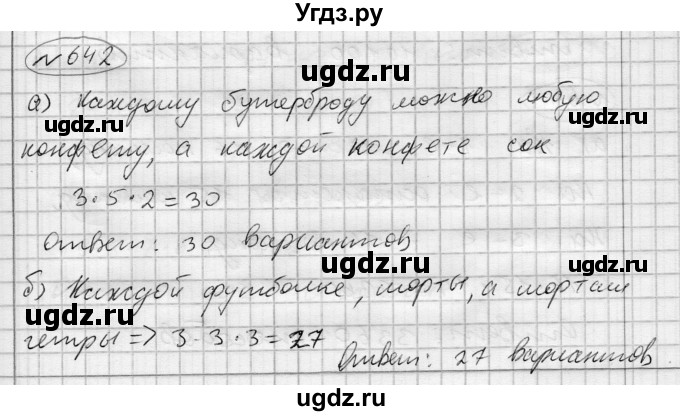 Угдз.ру
№ 642
ugdz.ru ugdz.ru
а) Каждому бутерброду можно любую
ugdz.ru ugdz.ru
конфету, а каждой конфете сок
ugdz.ru
3·5·2=30
Ответ: 30 вариантов
ugdz.ru ugdz.ru
б) Каждой футболке, шорты, а шортам
ugdz.ru ugdz.ru
гетры => 3·3·3=27
Ответ: 27 вариантов
ugdz.ru